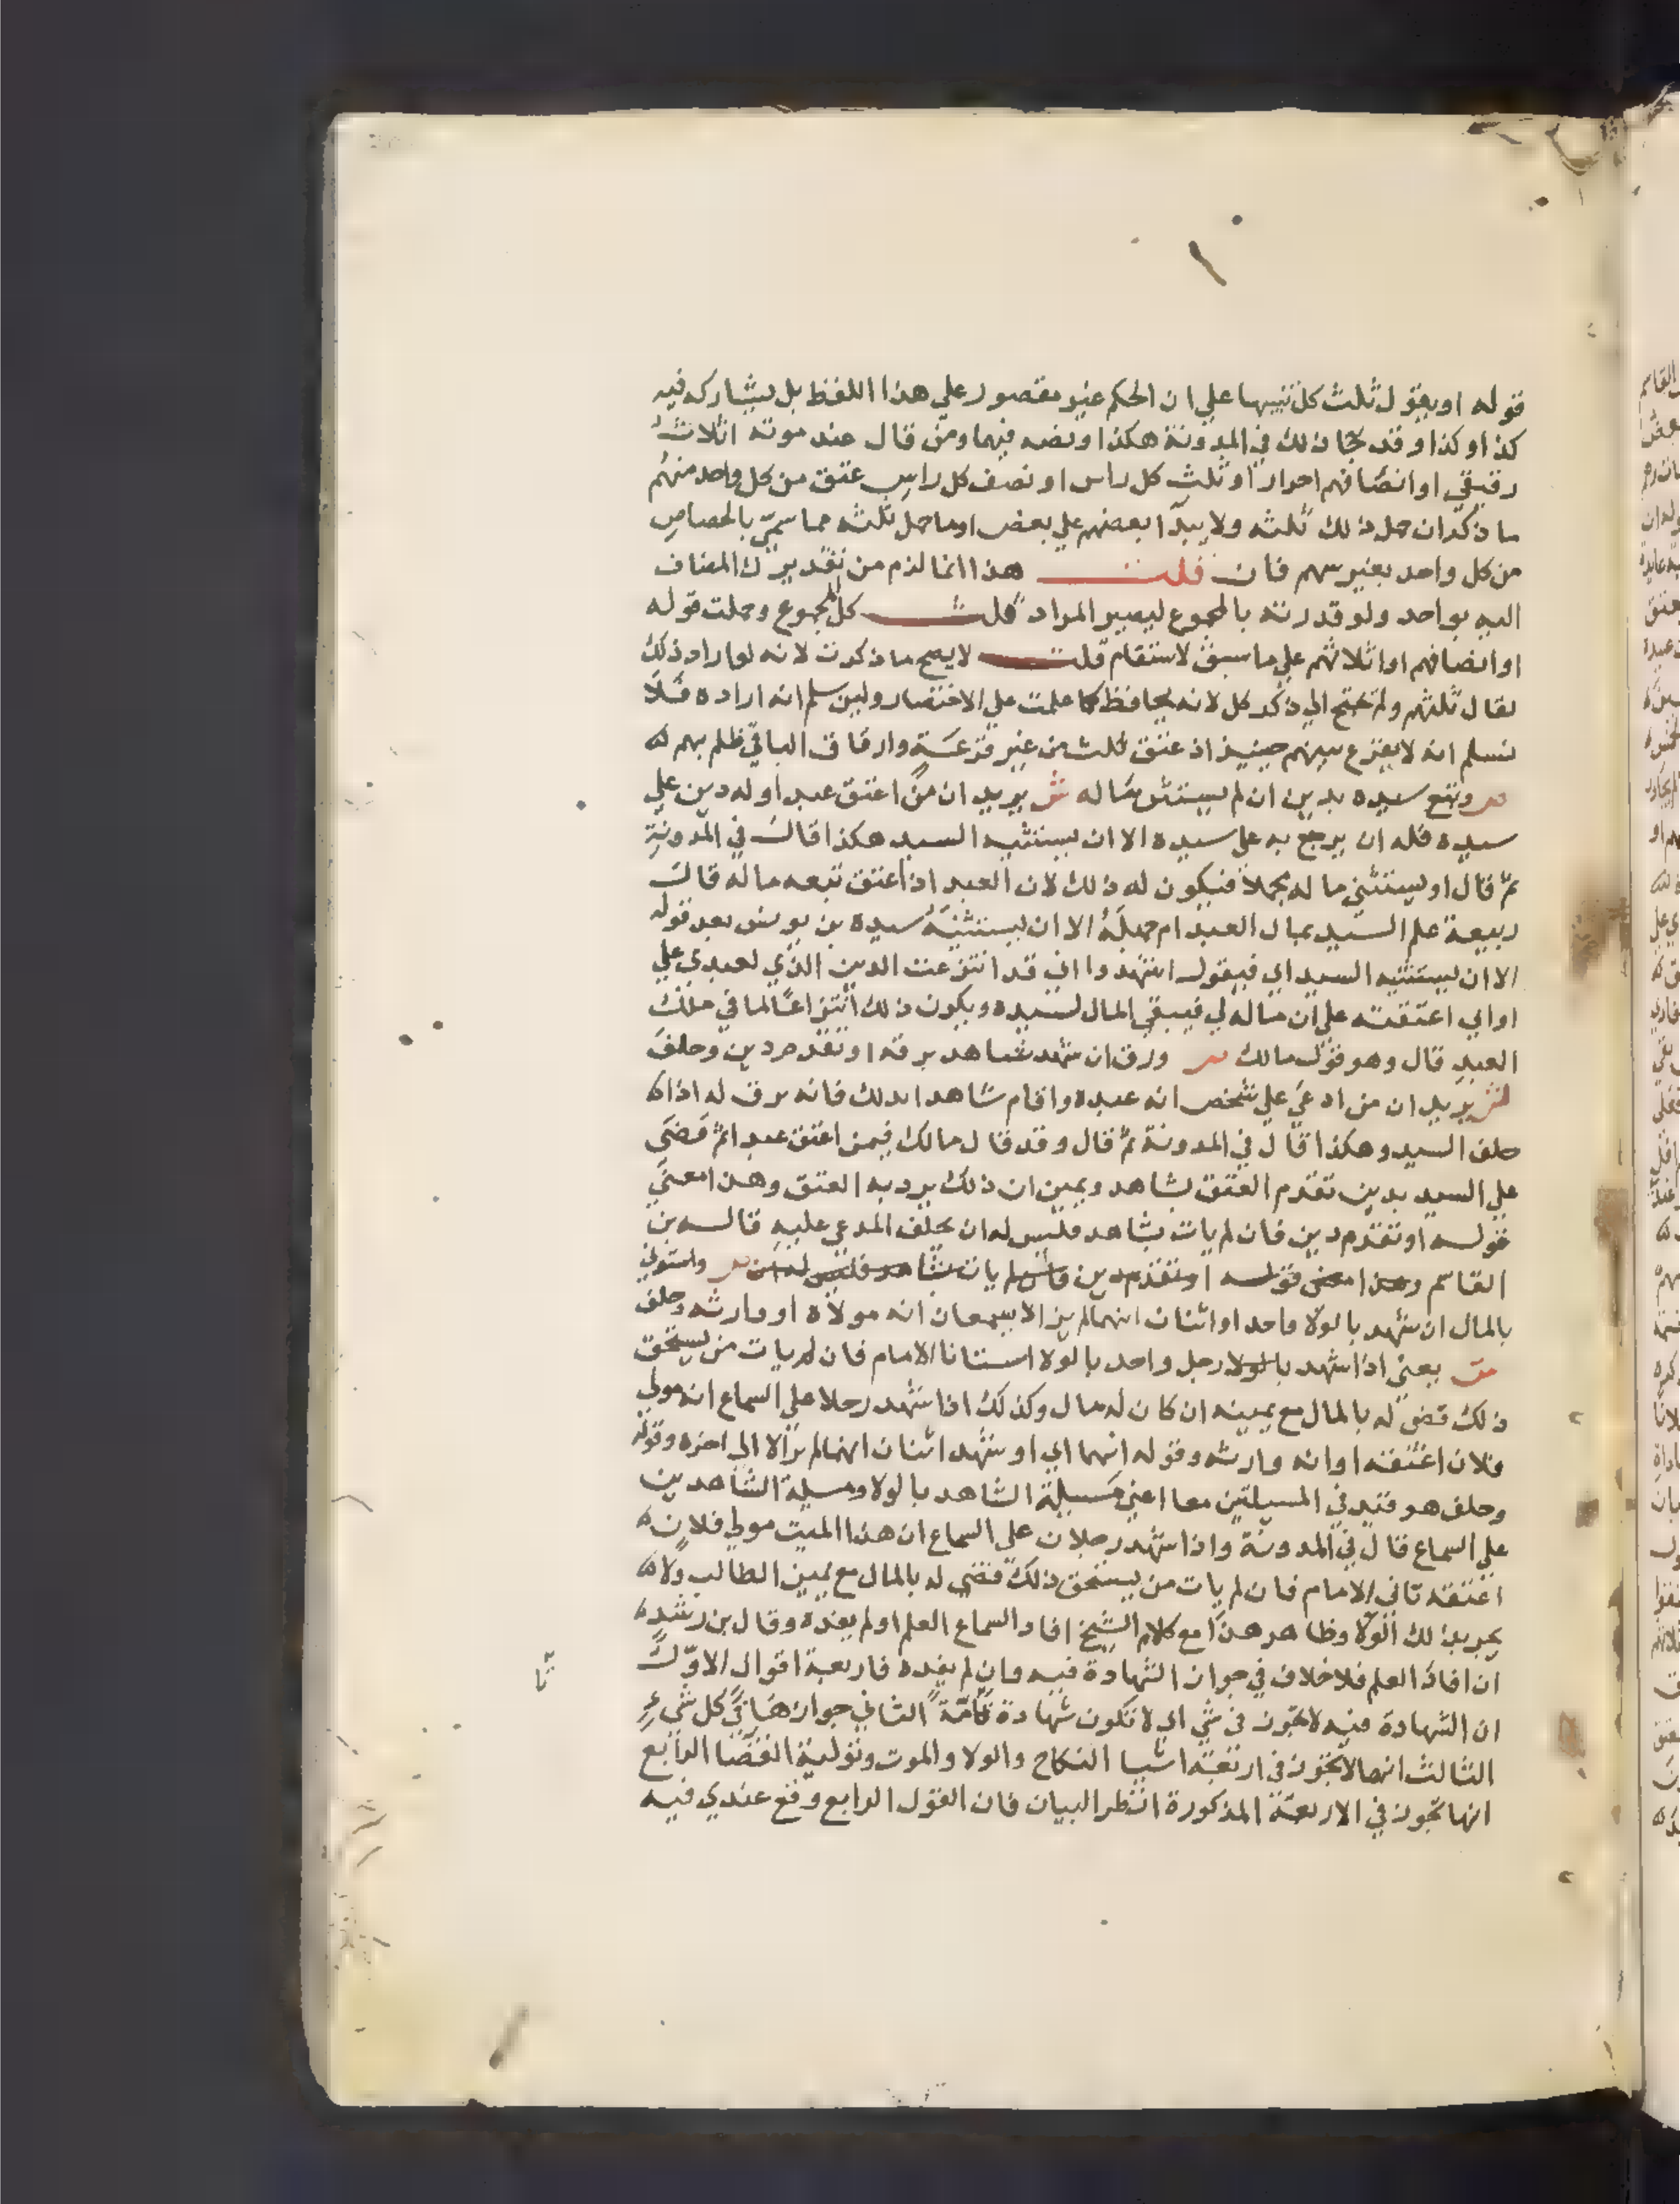 قوله او يقول ثلث كل تنبيها علي ان الحكم غير مقصور علي هذا اللفظ بل يشاركه فيه
كذا وكذا وقد جا ذلك في المدونة هكذا ونصه فيها ومن قال عند موته اثلاث
رقيقي او انصافهم احرار او ثلث كل راس او نصف كل راس عتق من كل واحد منهم
ما ذكر ان حمل ذلك ثلثه ولا يبدا بعضهم علي بعض او ما حمل ثلثه مما سمي بالحصاص
من كل واحد بغير سهم فان قلت هذا انما لزم من تقديرك المضاف
اليه بواحد ولو قدرته بالمجموع ليصير المراد ثلث كل المجموع وحملت قوله
او انصافهم او اثلاثهم علي ما سبق لاستقام قلت لا يصح ما ذكرت لانه لو اراد ذلك
لقال ثلثهم ولم يحتج الي ذكر كل لانه يحافظ كما علمت علي الاختصار ولين سلم انه اراده فلا
نسلم انه لا يقرع بينهم حينيذ اذ عتق ثلث من غير قرعة وارقاق الباقي ظلم بهم
ص وتبع سيده بدين ان لم يستثن ماله ش يريد ان من اعتق عبدا وله دين علي
سيده فله ان يرجع به علي سيده الا ان يستثنيه السيد هكذا قال في المدونة
ثم قال او يستثني ماله مجملا فيكون له ذلك لان العبد اذا عتق تبعه ماله قال
ربيعة علم السيد بمال العبد ام جهله الا ان يستثنيه سيده بن يونس بعد قوله
الا ان يستثنيه السيد اي فيقول اشهدوا اني قد انتزعت الدين الذي لعبدي علي
او اني اعتقته علي ان ماله لي فيبقي المال لسيده ويكون ذلك انتزاعا لما في ملك
العبد قال وهو قول مالك ص ورق ان شهد شاهد برقه او تقدم دين وحلف
ش يريد ان من ادعي علي شخص انه عبده واقام شاهدا بذلك فانه يرق له اذا
حلف السيد وهكذا قال في المدونة ثم قال وقد قال مالك فيمن اعتق عبدا ثم قضي
علي السيد بدين تقدم العتق بشاهد ويمين ان ذلك يرد به العتق وهذا معني
قوله او تقدم دين فان لم يات بشاهد فليس له ان يحلف المدعي عليه قاله بن
القاسم وهذا معني قوله او تقدم دين فان لم يات بشاهد فليس له ان ص واستوني
بالمال ان شهد بالولا واحد او اثنان انهما لم يزالا يسمعان انه مولاه او وارثه وحلف
ش يعني اذا شهد بالولا رجل واحد بالولا استانا الامام فان لم يات من يستحق
ذلك قضي له بالمال مع يمينه ان كان له مال وكذلك اذا شهد رجلا علي السماع انه مولي
فلان اعتقه او انه وارثه وقوله انهما اي او شهد اثنان انهما لم يزالا الي اخره وقوله
وحلف هو قيد في المسيلتين معا اعني مسيلة الشاهد بالولا ومسيلة الشاهدين
علي السماع قال في المدونة واذا شهد رجلان علي السماع ان هذا الميت مولي فلان
اعتقه تاني الامام فان لم يات من يستحق ذلك قضي له بالمال مع يمين الطالب ولا
يجر بذلك الولا وظاهر هذا مع كلام الشيخ افاد السماع العلم او لم يفده وقال بن رشد
ان افاد العلم فلا خلاف في جواز الشهادة فيه وان لم يفده فاربعة اقوال الاول
ان الشهادة فيه لا تجوز في شي اي لا تكون شهادة تامة الثاني جوازها في كل شيء
الثالث انها لا تجوز في اربعة اشيا النكاح والولا والموت وتولية القضا الرابع
انها تجوز في الاربعة المذكورة انظر البيان فان القول الرابع وقع عندي فيه